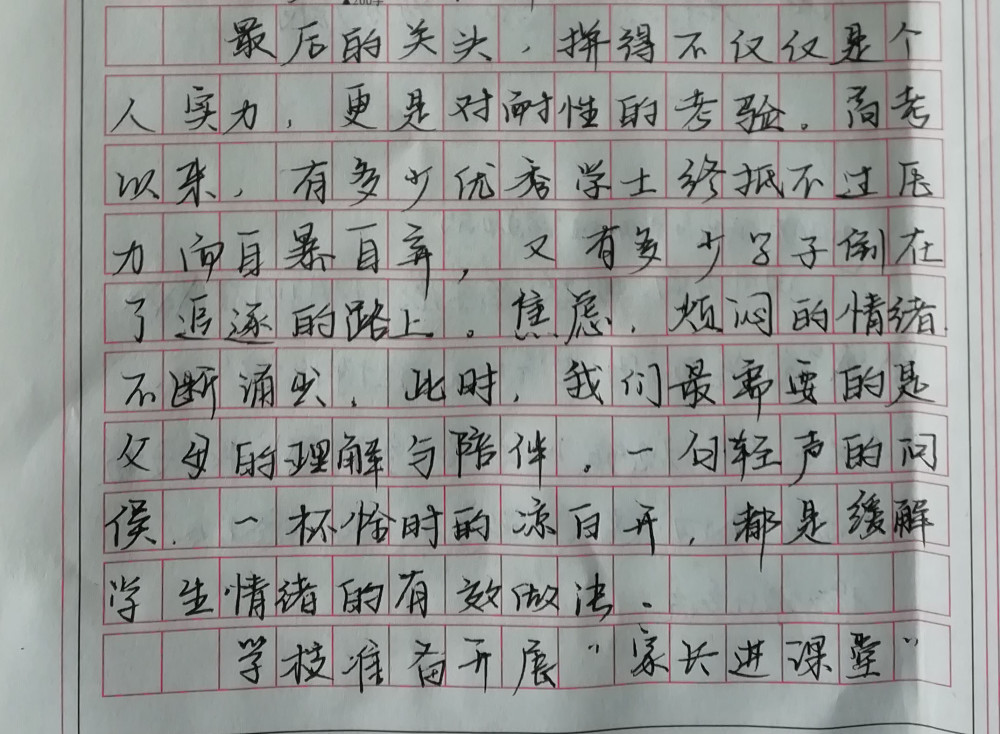 最后的关头，拼得不仅仅是个
人实力，更是对耐性的考验。高考
以来，有多少优秀学士终抵不过压
力而自暴自弃，又有多少学子倒在
了追逐的路上。焦虑，烦闷的情绪
不断涌出，此时，我们最需要的是
父母的理解与陪伴。一句轻声的问
侯，一杯恰时的凉白开，都是缓解
学生情绪的有效做法。
学校准备开展“家长进课堂”